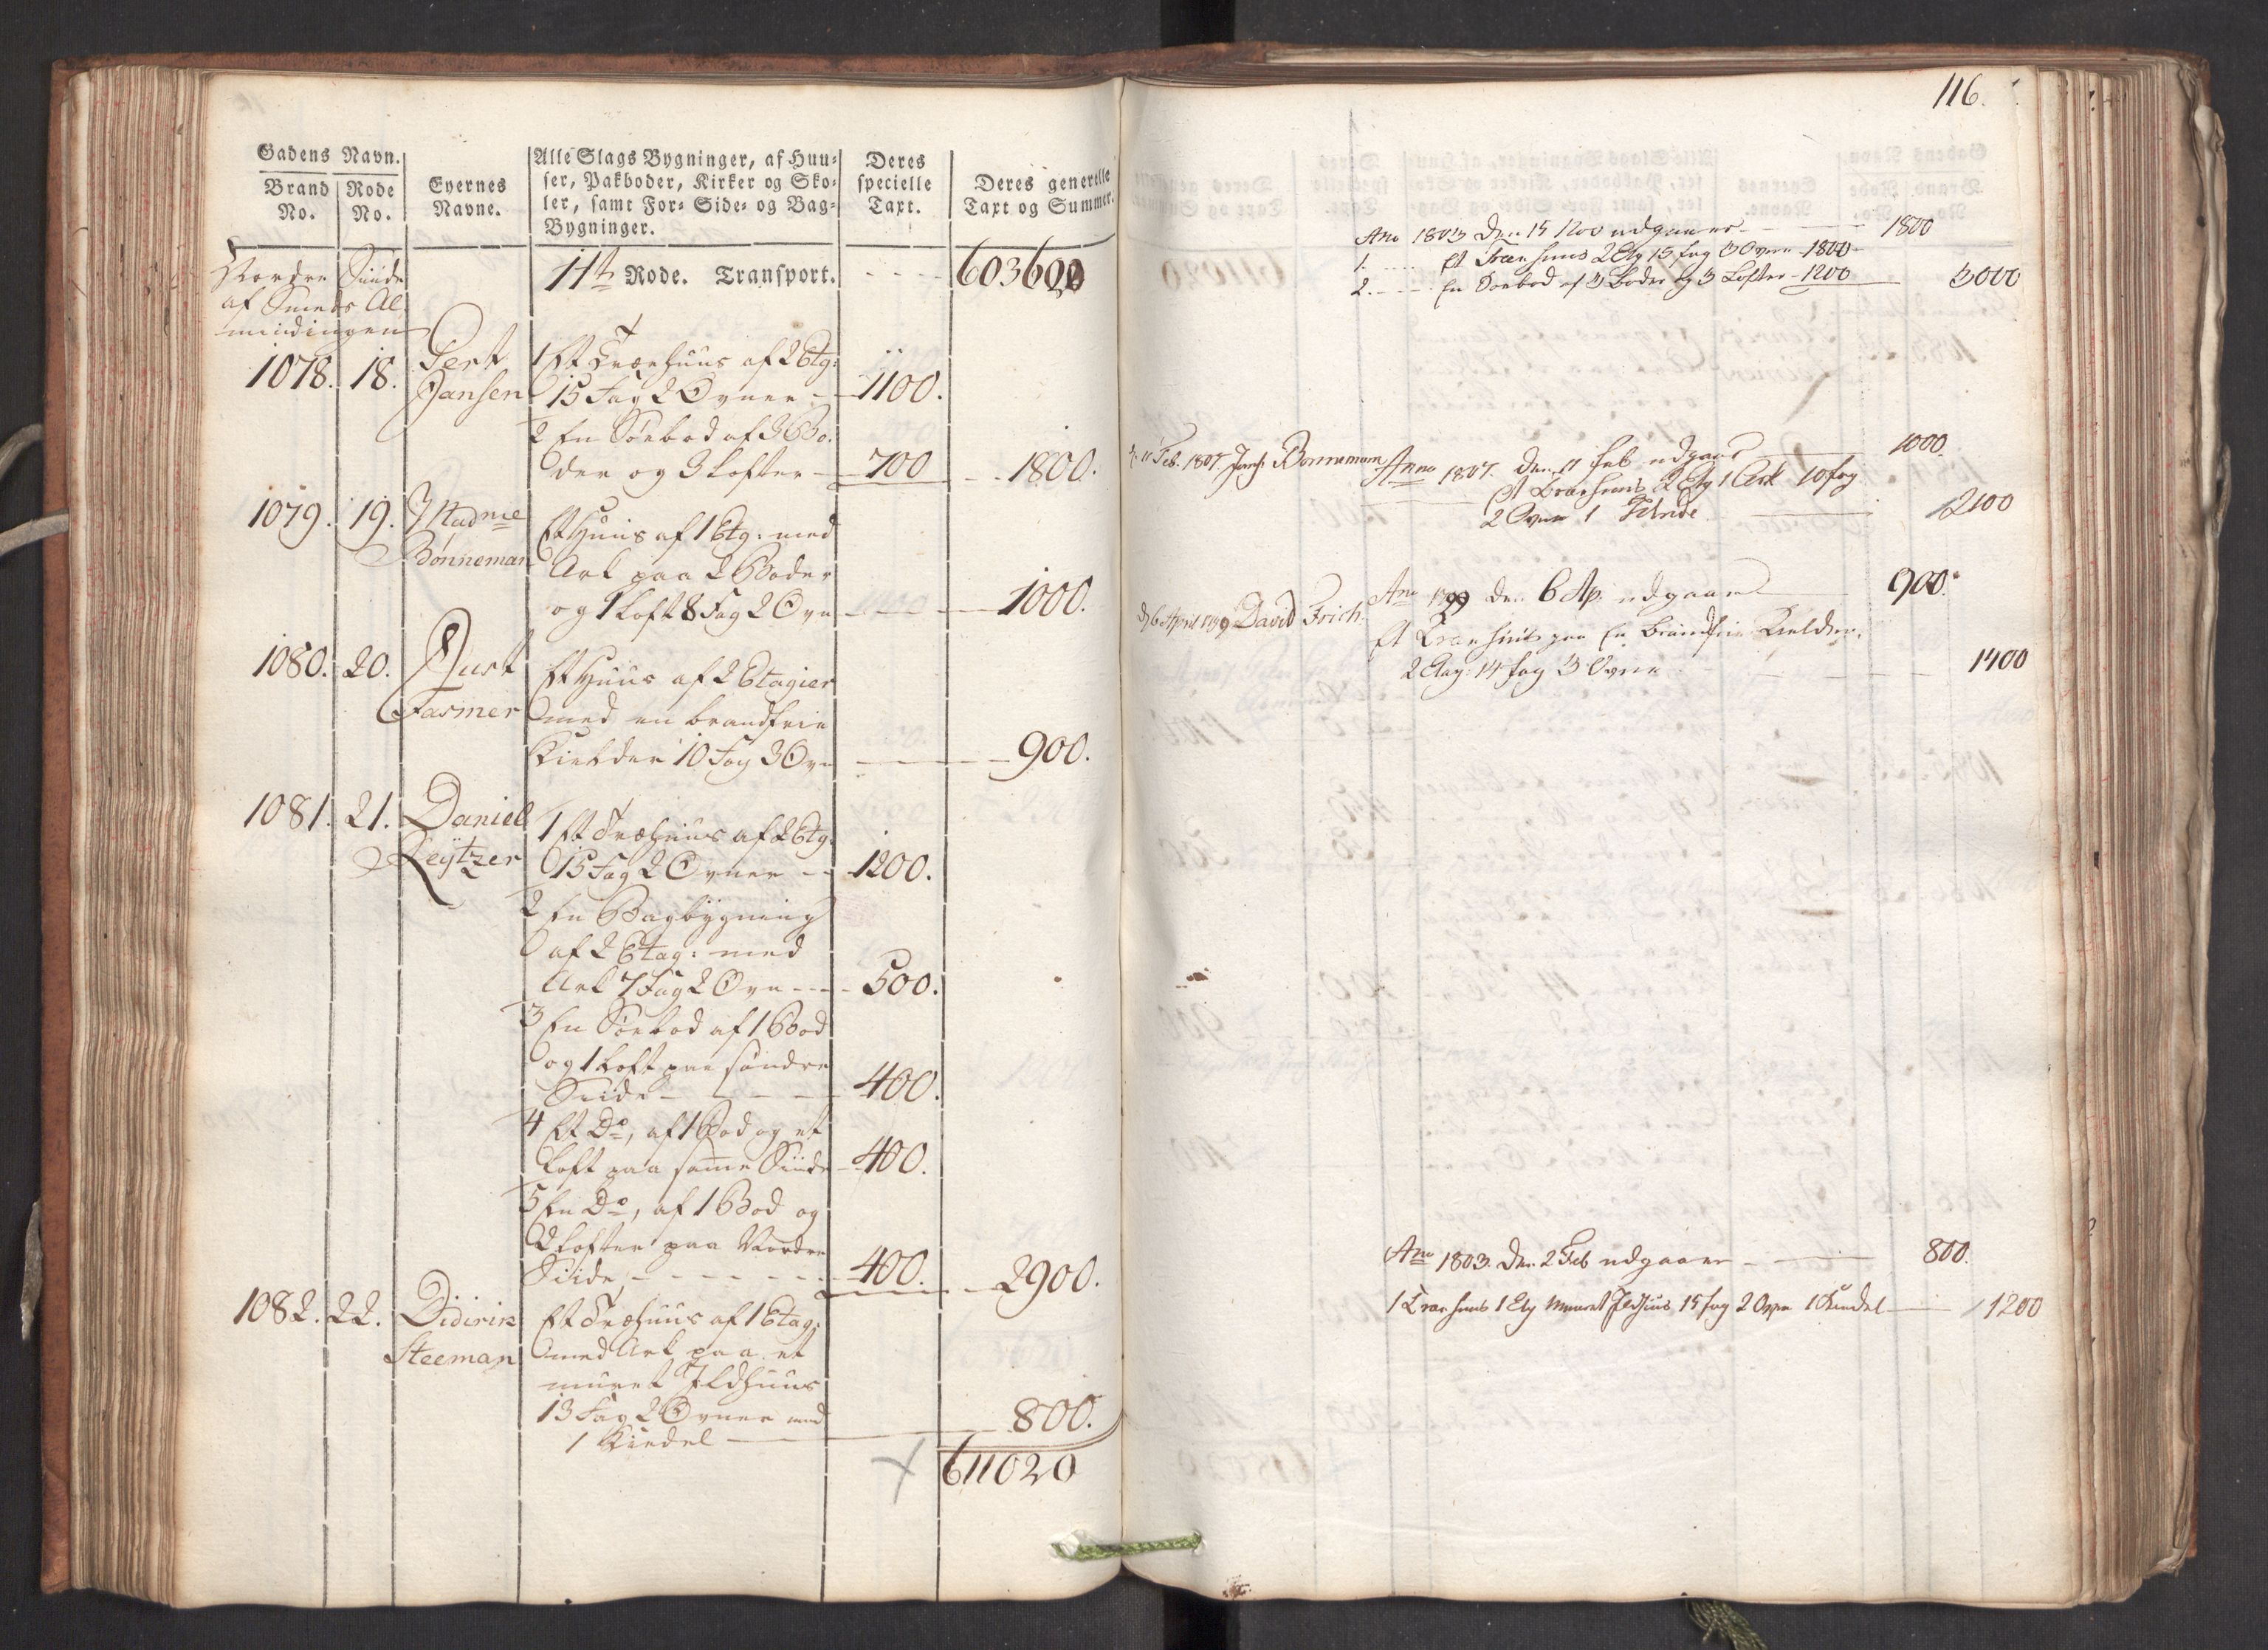 Gadens Navn.
Brand No.
Rode No.
Eyernes Navne.
Alle Slags Bygninger, af Huu-
ser, Pakboder, Kirker og Sko-
ler, samt For- Side- og Bag-
Bygninger.
Deres specielle Taxt.
Deres generelle Taxt og Summer.
Nordre Siide
af Smeds Al
mindingen
11te Rode. Transport. 603600
1078. 18. Gert Jansen
1 Et Træehuus af 2 Etg:
15 Fag 2 Ovner - 1100.
2 En Søebod af 3 Bo-
der og 3 Lofter - 700 - 1800.
1079. 19. Madme Bønneman
Et Huus af 1 Etg: med
Ark paa 2 Boder
og 1 Loft 8 Fag 2 Ovn - 1000.
1080. 20. Just Fasmer
Et Huus af 2 Etagier
med en brandfrie
Kielder 10 Fag 3 Ovn - 900.
1081. 21. Daniel Reÿtzer
1 Et Træhuus af 2 Etg:
15 Fag 2 Ovner - - 1200.
2 En Bagbÿgning
af 2 Etag: med
Ark 7 Fag 2 Ovn - - - 500.
3 En Søebod af 1 Bod
og 1 Loft paa søndre
Siide - - - - 400.
4 Et Do, af 1 Bod og et
Loft paa samme Siide - 400.
5 En Do, af 1 Bod og
2 Lofter paa Nordre
Siide - - - - - - 400. - 2900.
1082. 22. Didirik Steeman
Et Træhuus af 1 Etag:
med Ark paa et
muret Ildhuus
13 Fag 2 Ovner med
1 Kiedel - 800.
611020
116.
Ano 1803 den 15 Nov udgaaer - 1800
1. Et Træehuus 2 Etg 15 fag 3 Ovne 1800
2. En Søebod af 3 Boder og 3 Lofter - 1200 3000
11 Feb. 1807. Bonnemann
Anno 1807. den 11 Feb udgaaer 1000.
Et Træehuus 2 Etg 1 Ark 10 fag
2 Ovne 2100
d 6 April 1799 David Frich.
Ano 1799 den 6 Ap. udgaaer 900.
Et Træehuus paa En brandfrie Kielder.
2 Etag: 14 fag 3 Ovne - 1400
Ano 1803. den 2 Feb udgaaer - 800.
1 Træehuus 1 Etg muuret Ildhuus 15 fag 2 Ovne 1 Kiedel - 1200